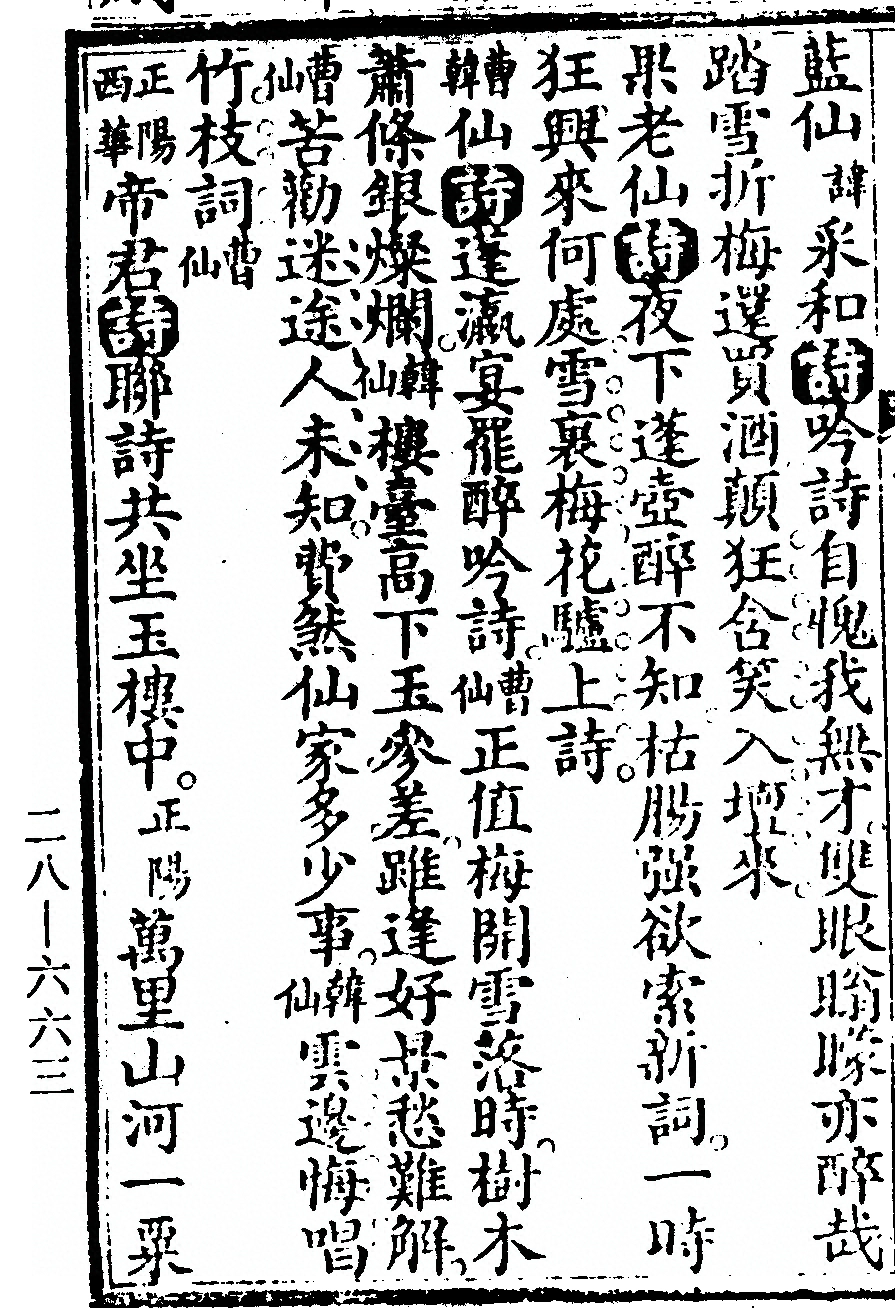 藍仙諱采和詩吟詩自愧我無才雙眼矇亦醉哉
踏雪折梅還買酒顛狂含笑入壇來
果老仙詩夜下蓬壺醉不知枯腸强欲索新詞。一時
狂興來何處雪裏梅花驢上詩。
曹韓仙詩蓬瀛宴罷醉吟詩。曹仙正值梅開雪落時。樹木
蕭條銀燦爛。韓仙樓臺高下玉參差。雖逢好景愁難解。
曹仙苦勸迷途人未知。費煞仙家多少事。韓仙雲邊悔唱
竹枝詞曹仙
正陽西華帝君詩聯詩共坐玉樓中。正陽萬里山河一粟
二八—六六三